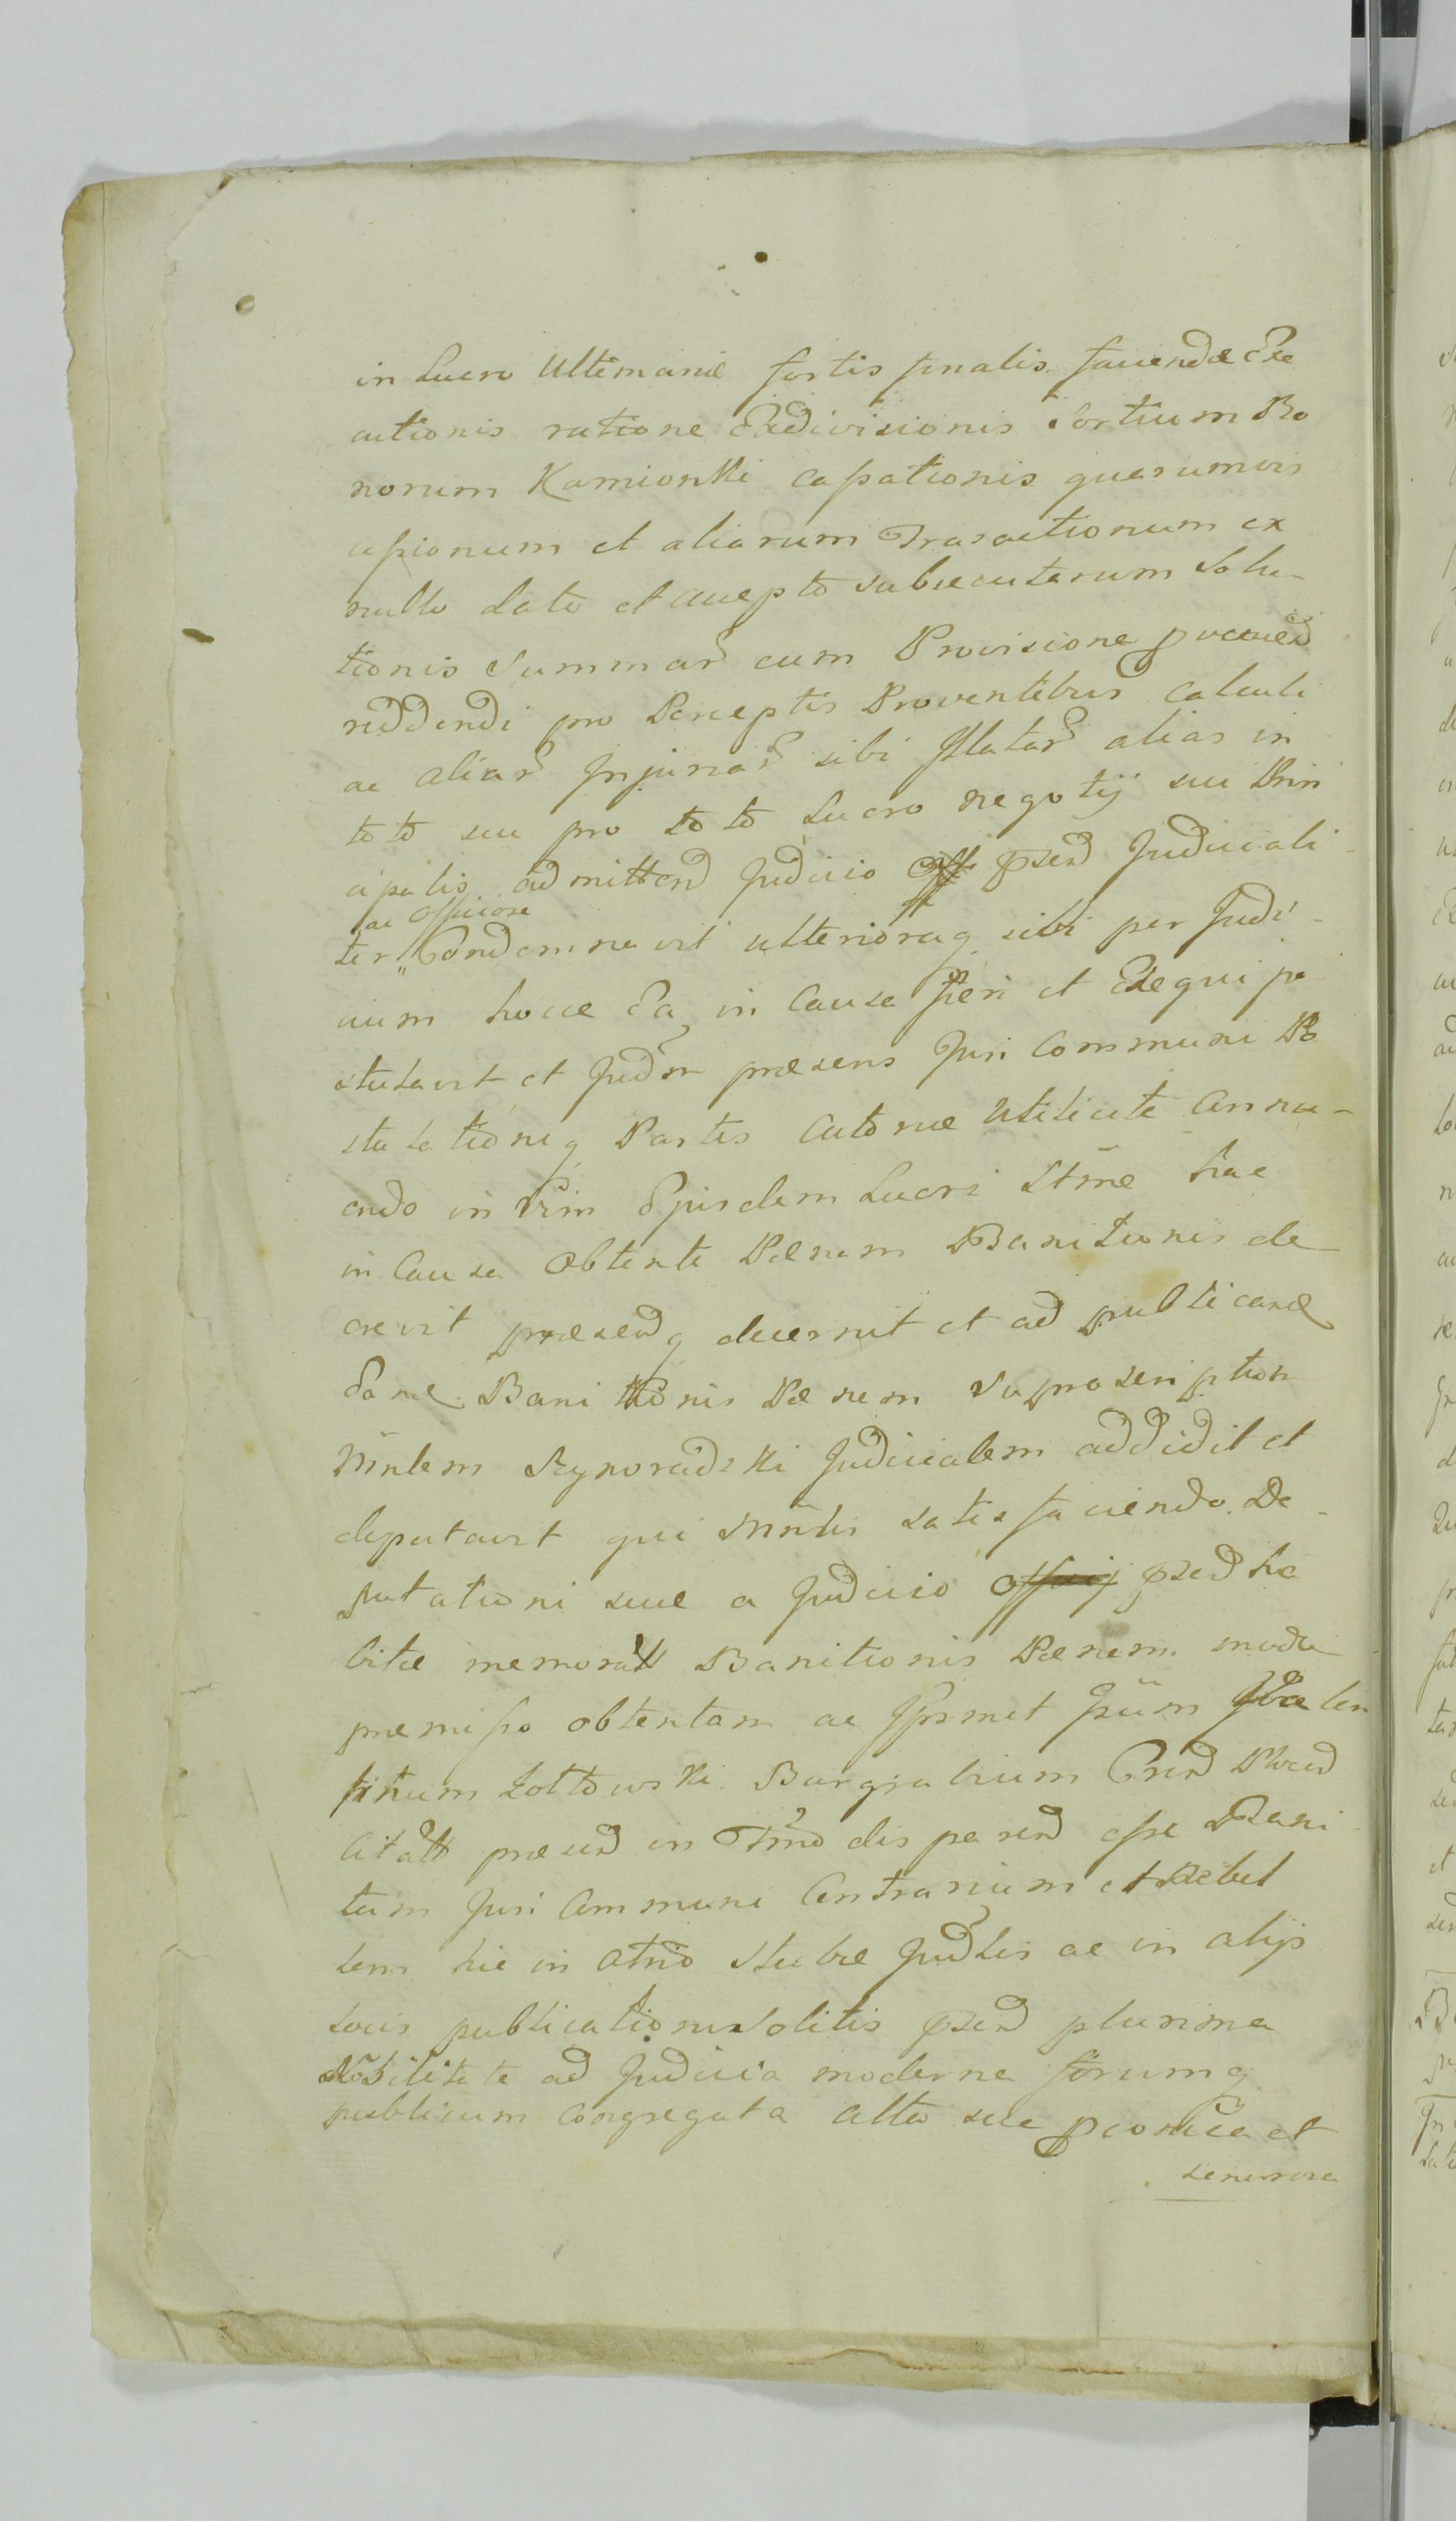 in Lucro Ultimariæ fortis finalis favendæ Exe
cutionis ratione Exdivisionis Sortium Bo
norum Kamionki cassationis quarumvis
cessionum et aliarum Transactionum ex
nullo dato et accepto subsecutarum Solu-
tionis Summar cum Provisione
reddendi pro Perceptis Proventibus calculi
ac aliar Injuriar sibi Illatar alias in
toto seu pro toto Lucro negotij sui Prin
cipalis admittend Judicio psend Judiciali-
ac Officiose
ter Condemnavit ulterioraq sibi per Judi-
cium hocce Ea in Causa fieri et Exequi po
stulavit et Judm præsens Juri Communi Po
stulationiq Partis Actoreæ Utilitate Annu-
endo in Vim Ejusdem Lucri Stme hac
in Causa Obtente Pænam Banitionis de
crevit præsendq decernit et ad publicand
Eand Banitionis Pænam Suprascription
Mnlem Rzynoradzki Judicialem addidit et
deputavit qui Mnlis satisfaciendo De-
putationi suæ a Judicio Officij psend ha
bitæ memorat Banitionis Pænam modo
præmisso obtentam ac Ipsmet Gsum Valen
tinum Żołtowski Burgrabium Grnd Plocend
Citatt præsend in Tmno disparend esse Bani
tum Juri Communi Contrarium et Rebel
lem hic in Atrio Stubæ Judlis ac in alijs
locis publicationi Solitis psend plurima
Nobilitate ad Judicia moderna forumq
publicum congregata alta sua pconica et
senerosa